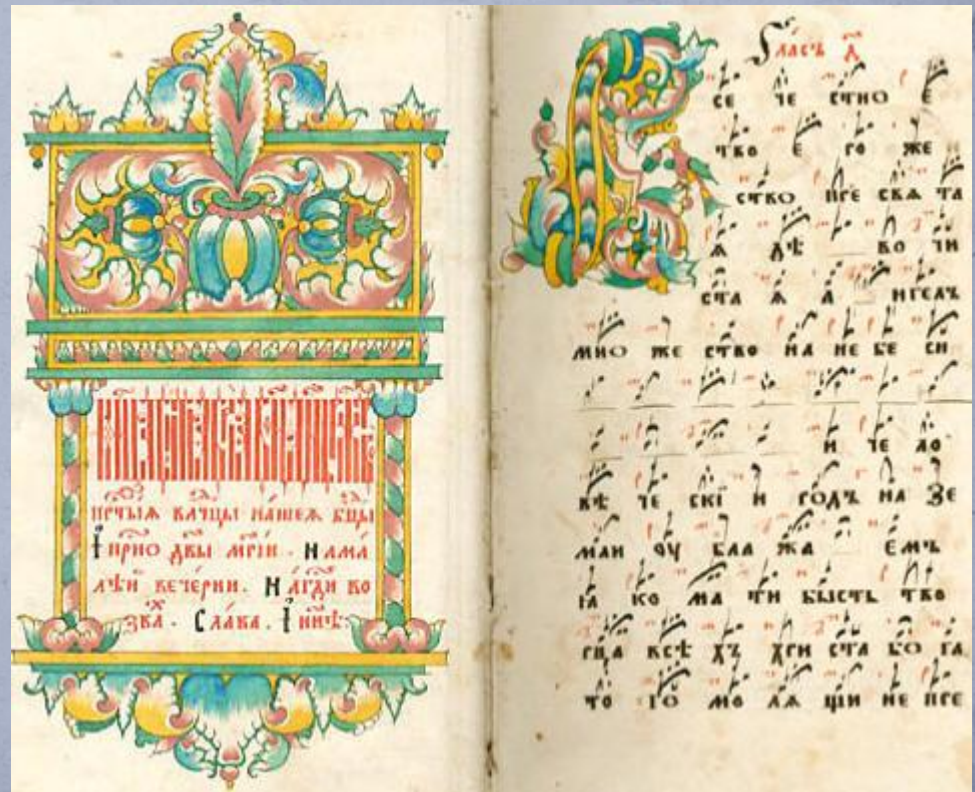 прⷭ҇тыѧ влⷣчцы нашеѧ бцⷣы
І прно двы мріи . На ма
лѣй вечерни . На гдⷭ҇и во
зваⷯ . Слава . І ннѣ:
Гласъ а҃
Всече стно е
тво е го же и
ство пре свѧ та
ѧ дѣ во чи
ста ѧ а нгелъ
мно же ство на не бе си
и че ло
вѣ че скі и родъ на зе
мли оу бла жа емъ
ꙗ ко ма ти бысть тво
рца всѣ хъ хри ста бо га
то го мо лѧ щи не пре